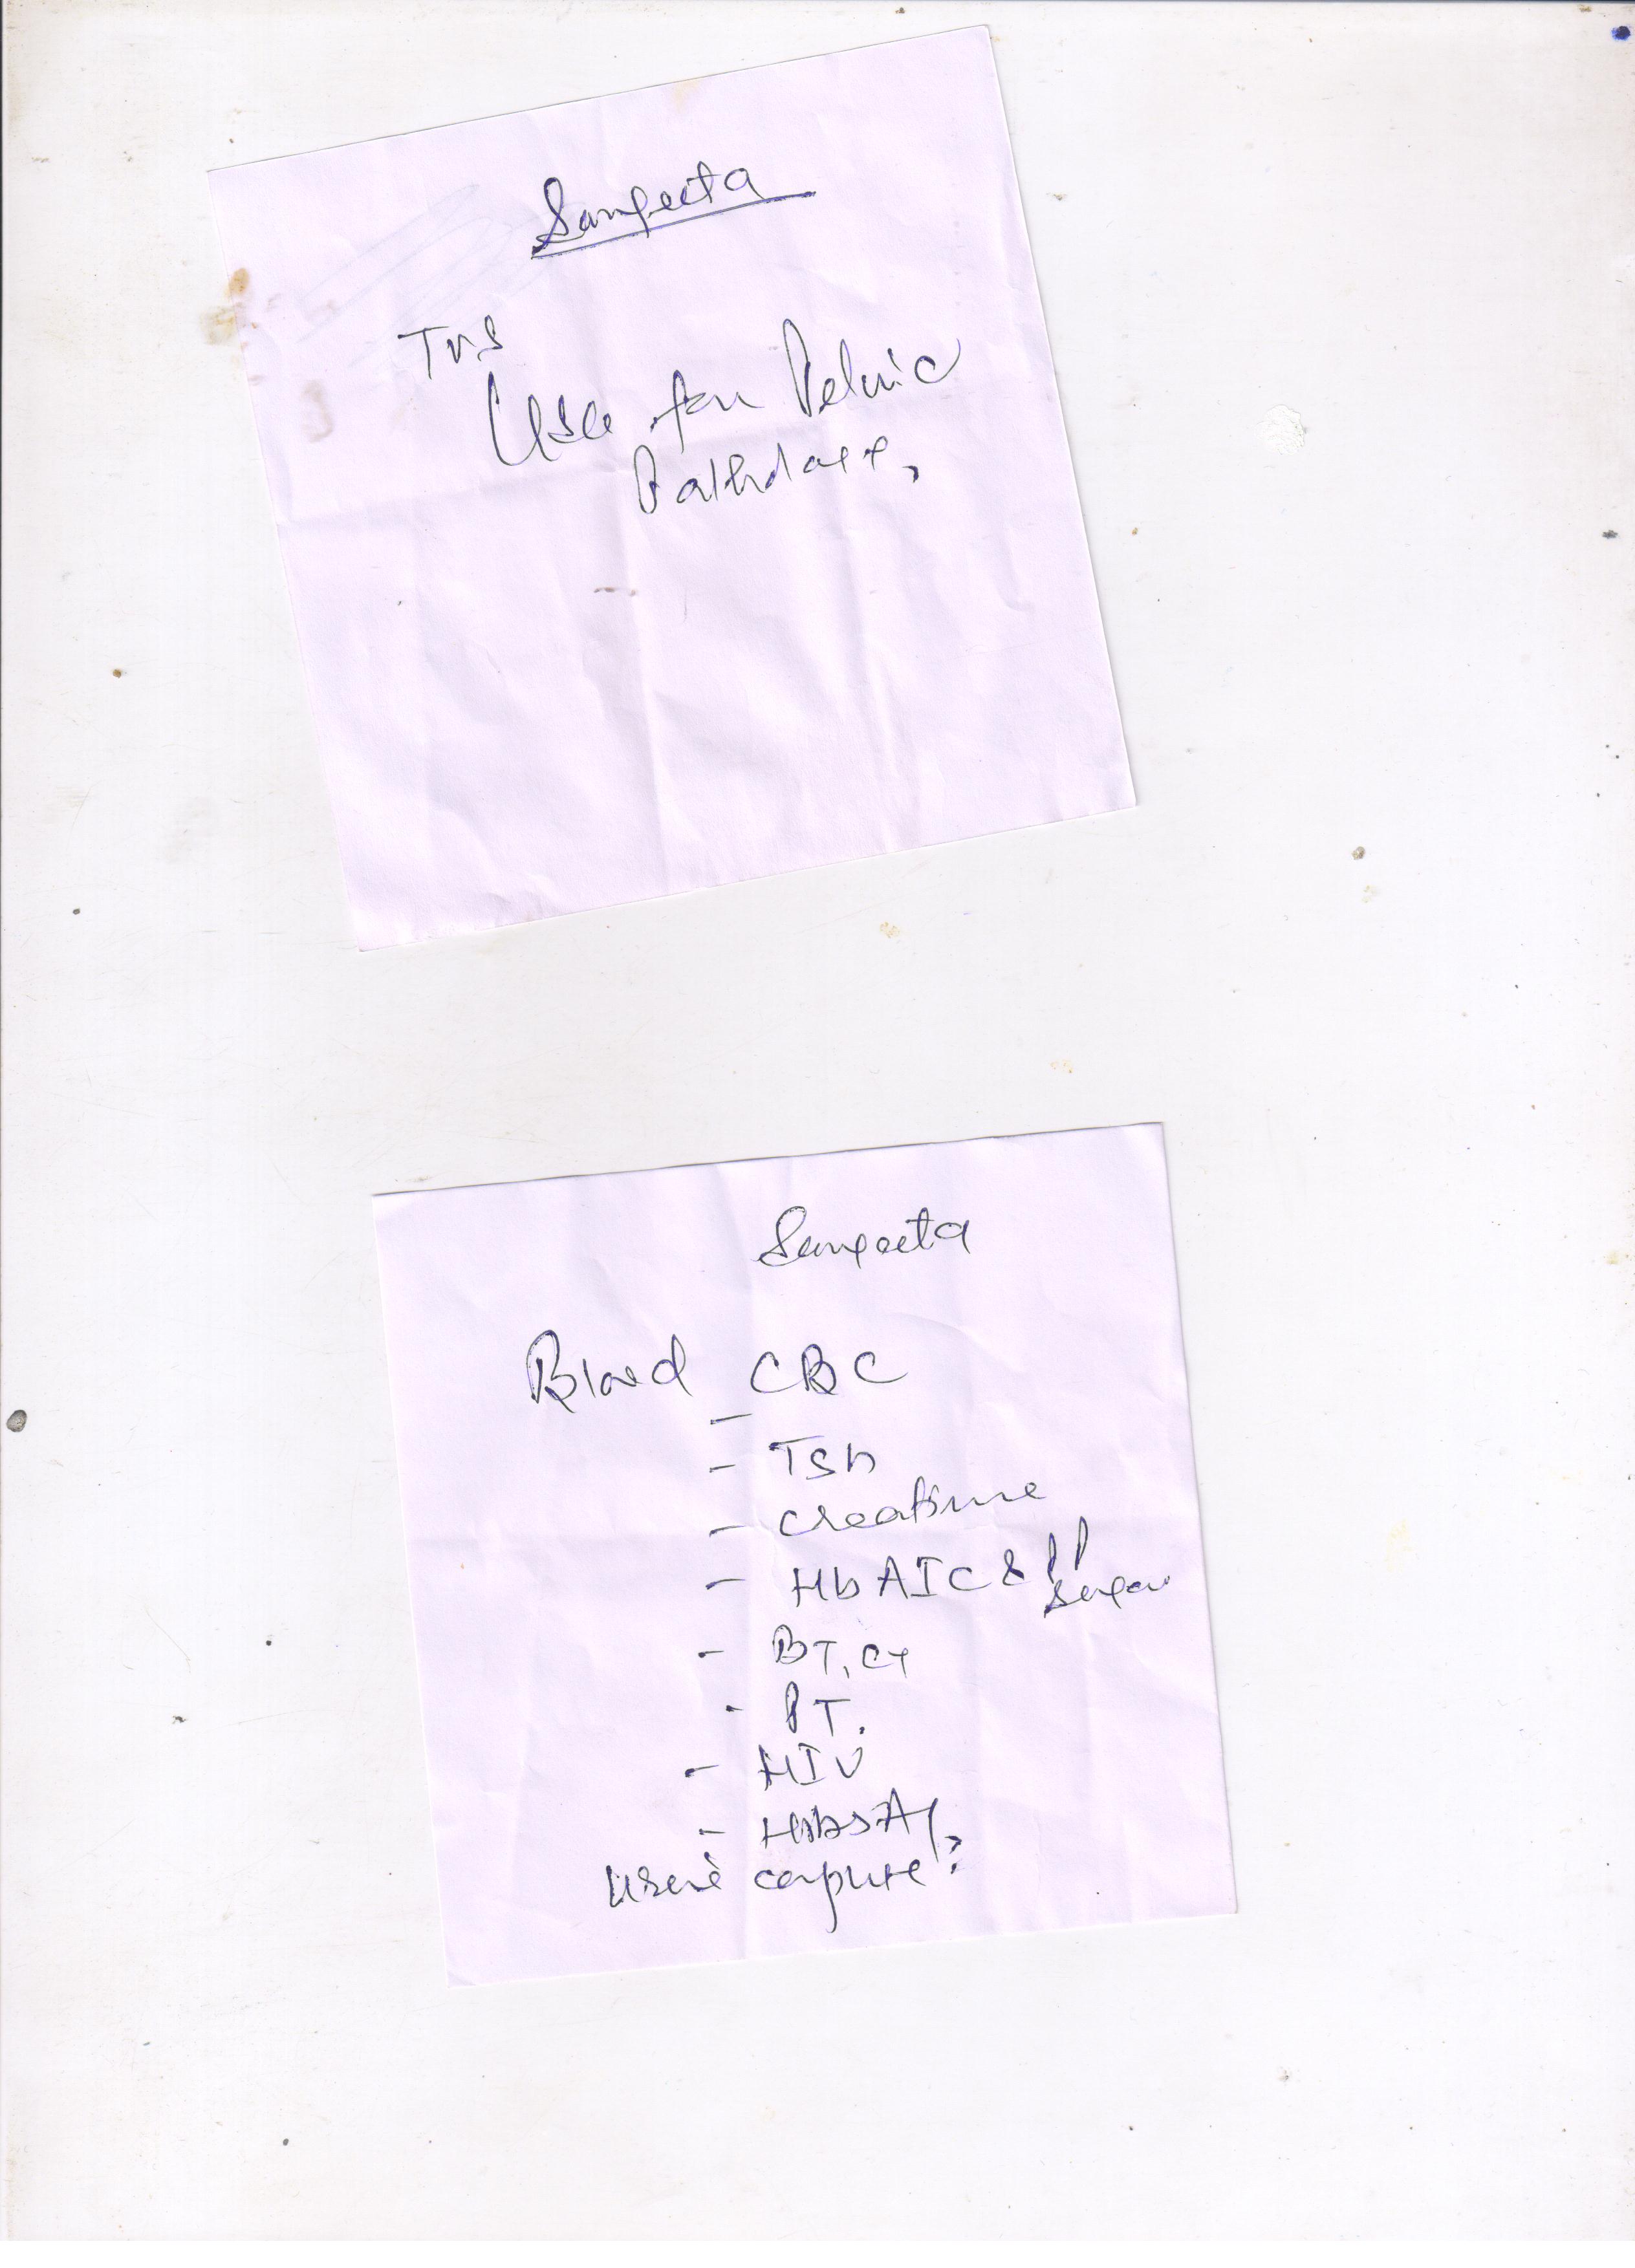 Sangeeta
TVS
USG for Pelvic
Pathology,
Sangeeta
Blood CBC
- TSH
- Creatinine
- HbA1C & PP
sugar
- BT, CT
- PT.
- HIV
- HBsAg,
Urine complete.